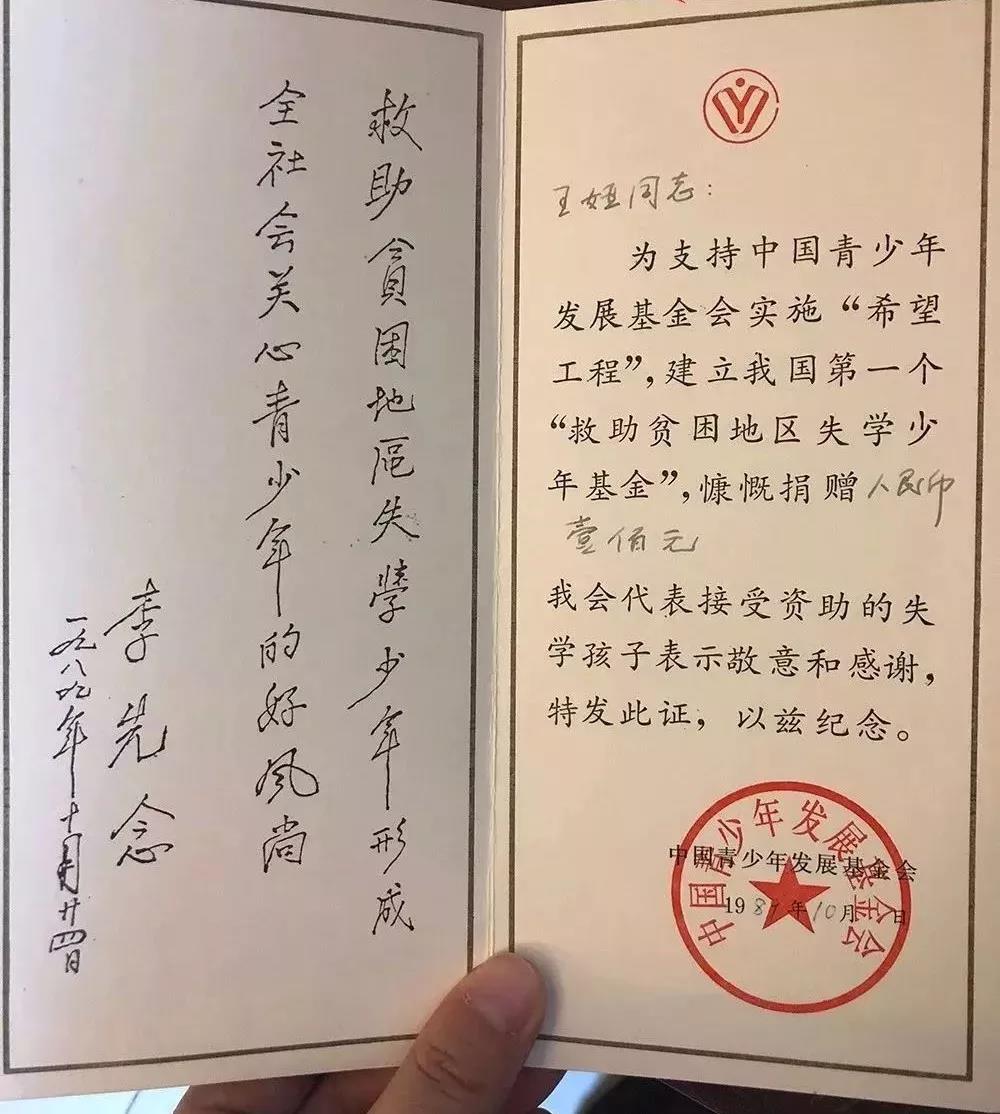 救助貧困地區失學少年形成
全社会关心青少年的好风尚
李先念
一九八九年十月廿四日
王娅同志：
为支持中国青少年
发展基金会实施“希望
工程”，建立我国第一个
“救助贫困地区失学少
年基金”，慷慨捐赠人民币
壹佰元
我会代表接受资助的失
学孩子表示敬意和感谢，
特发此证，以兹纪念。
中国青少年发展基金会
1989年10月 日
中国青少年发展基金会